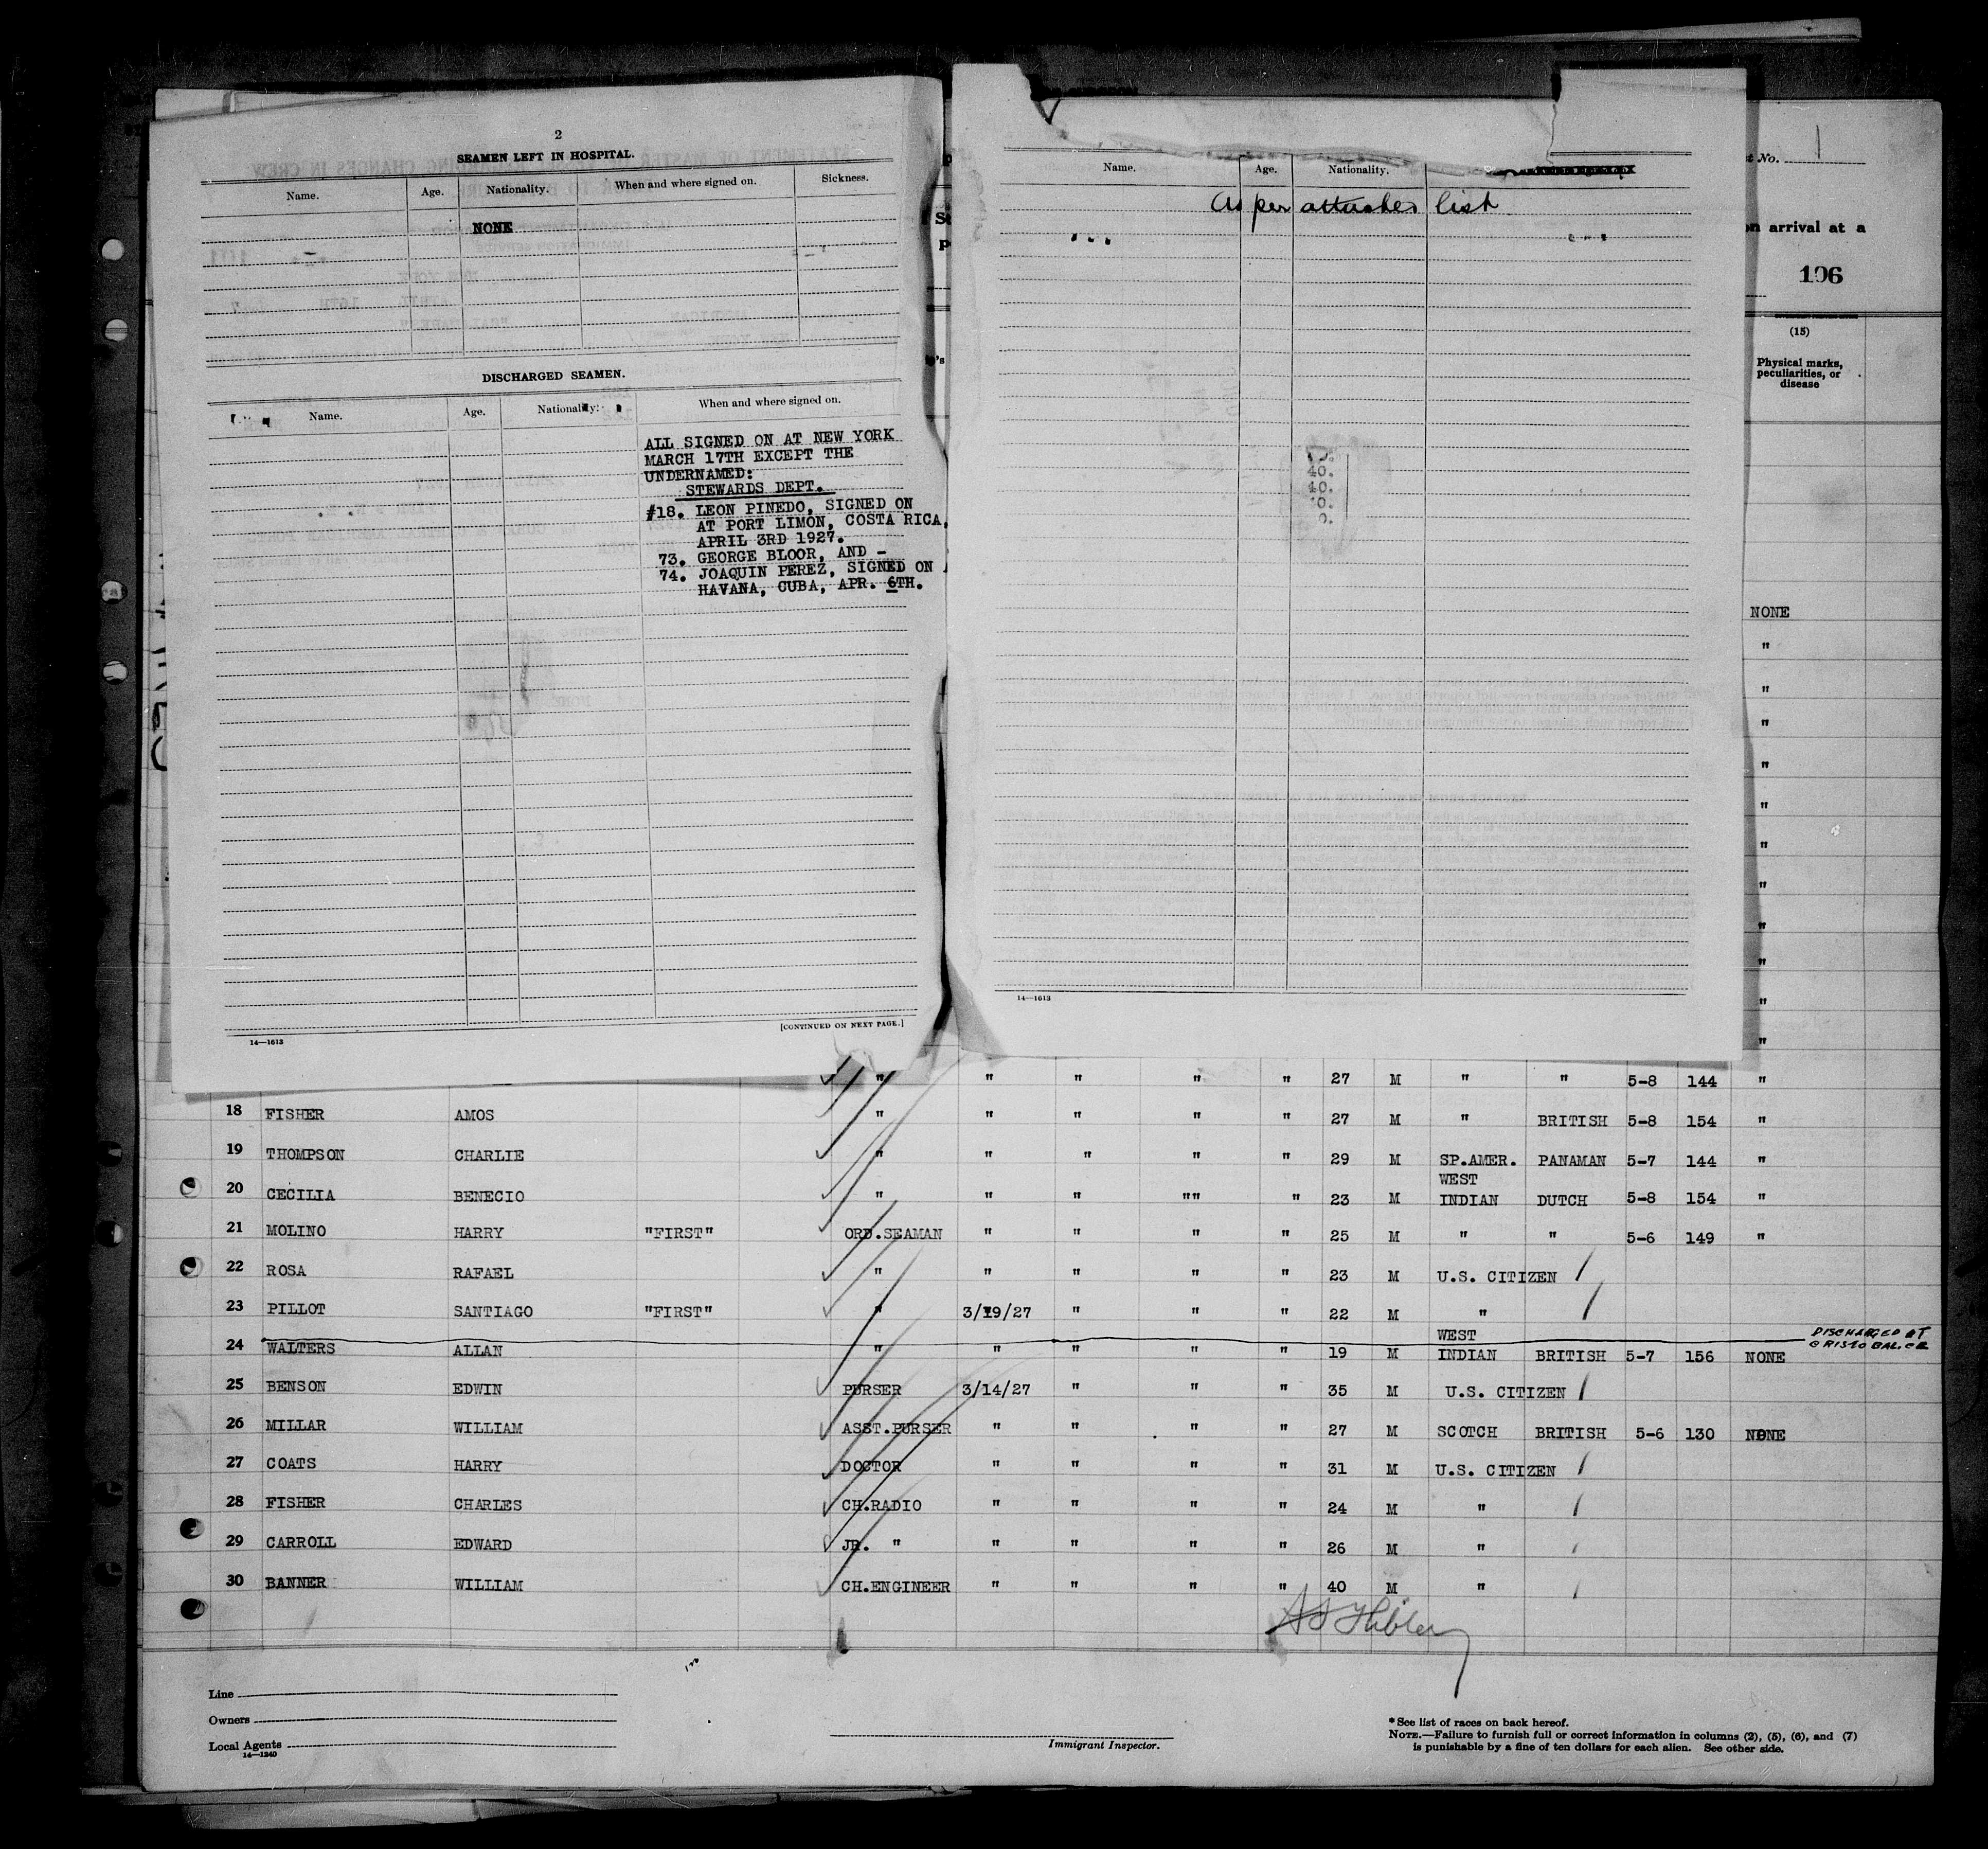 2
SEAMEN LEFT IN HOSPITAL.
Name. Age. Nationality. When and where signed on. Sickness.
NONE
DISCHARGED SEAMEN.
Name. Age. Nationality. When and where signed on.
ALL SIGNED ON AT NEW YORK
MARCH 17TH EXCEPT THE
UNDERNAMED:
STEWARDS DEPT.
#18. LEON PINEDO, SIGNED ON
AT PORT LIMON, COSTA RICA,
APRIL 3RD 1927.
73. GEORGE BLOOR, AND -
74. JOAQUIN PEREZ, SIGNED ON
HAVANA, CUBA, APR. 6TH.
[CONTINUED ON NEXT PAGE.]
14—1613
Name. Age. Nationality.
As per attaches list
40.
40.
14—1613
No. 1
on arrival at a
106
(15)
Physical marks,
peculiarities, or
disease
NONE
"
"
"
"
"
"
"
"
"
"
"
" " " " " 27 M " " 5-8 144 "
18 FISHER AMOS " " " " " 27 M " BRITISH 5-8 154 "
19 THOMPSON CHARLIE " " " " " 29 M SP.AMER. PANAMAN 5-7 144 "
20 CECILIA BENECIO " " " "" " 23 M WEST INDIAN DUTCH 5-8 154 "
21 MOLINO HARRY "FIRST" ORD.SEAMAN " " " " 25 M " " 5-6 149 "
22 ROSA RAFAEL " " " " " 23 M U.S. CITIZEN
23 PILLOT SANTIAGO "FIRST" " 3/19/27 " " " 22 M "
24 WALTERS ALLAN " " " " " 19 M WEST INDIAN BRITISH 5-7 156 NONE DISCHARGED AT CRISTOBAL.CZ
25 BENSON EDWIN PURSER 3/14/27 " " " 35 M U.S. CITIZEN
26 MILLAR WILLIAM ASST.PURSER " " " " 27 M SCOTCH BRITISH 5-6 130 NONE
27 COATS HARRY DOCTOR " " " " 31 M U.S. CITIZEN
28 FISHER CHARLES CH.RADIO " " " " 24 M "
29 CARROLL EDWARD JR. " " " " " 26 M "
30 BANNER WILLIAM CH.ENGINEER " " " " 40 M "
Line
Owners
Local Agents
14—1240
Immigrant Inspector.
*See list of races on back hereof.
NOTE.—Failure to furnish full or correct information in columns (2), (5), (6), and (7)
is punishable by a fine of ten dollars for each alien. See other side.